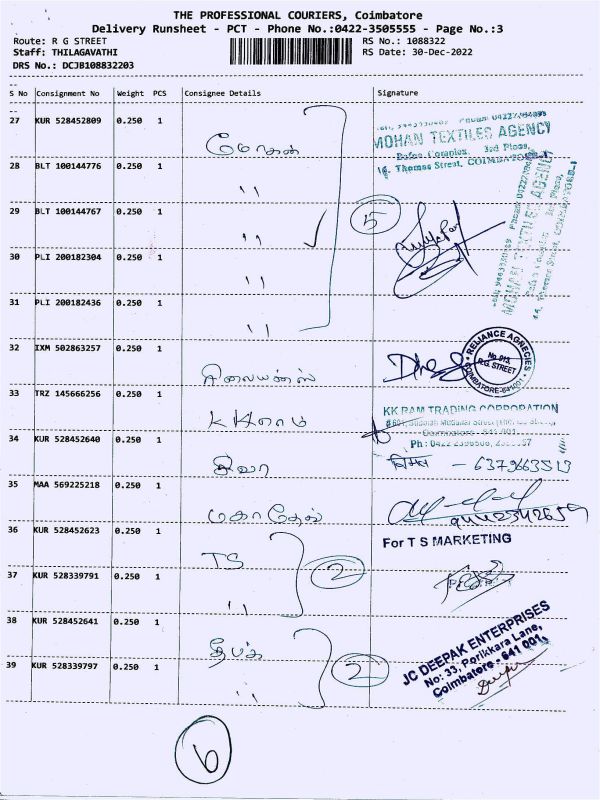 THE PROFESSIONAL COURIERS, Coimbatore
Delivery Runsheet - PCT - Phone No.:0422-3505555 - Page No.:3
Route: R G STREET
RS No.: 1088322
Staff: THILAGAVATHI
RS Date: 30-Dec-2022
DRS No.: DCJB108832203
S No Consignment No Weight PCS Consignee Details Signature
27 KUR 528452809 0.250 1 மோகன்
MOHAN TEXTILES AGENCY
3rd Floor,
Thomas Street, COIMBATORE-1
28 BLT 100144776 0.250 1 ''
29 BLT 100144767 0.250 1 ''
5
30 PLI 200182304 0.250 1 ''
31 PLI 200182436 0.250 1 ''
MOHAN TEXTILES AGENCY
32 IXM 502863257 0.250 1 ரிலையன்ஸ்
RELIANCE AGRECIES
R.G. STREET
COIMBATORE-641001
33 TRZ 145666256 0.250 1 KKராம்
KK RAM TRADING CORPORATION
34 KUR 528452640 0.250 1 சிவா
- 6379663513
35 MAA 569225218 0.250 1 மகாதேவ்
36 KUR 528452623 0.250 1 TS
For T S MARKETING
37 KUR 528339791 0.250 1 ''
2
38 KUR 528452641 0.250 1 தீபக்
JC DEEPAK ENTERPRISES
No: 33, Porikkara Lane,
Coimbatore - 641 001.
39 KUR 528339797 0.250 1 ''
2
6